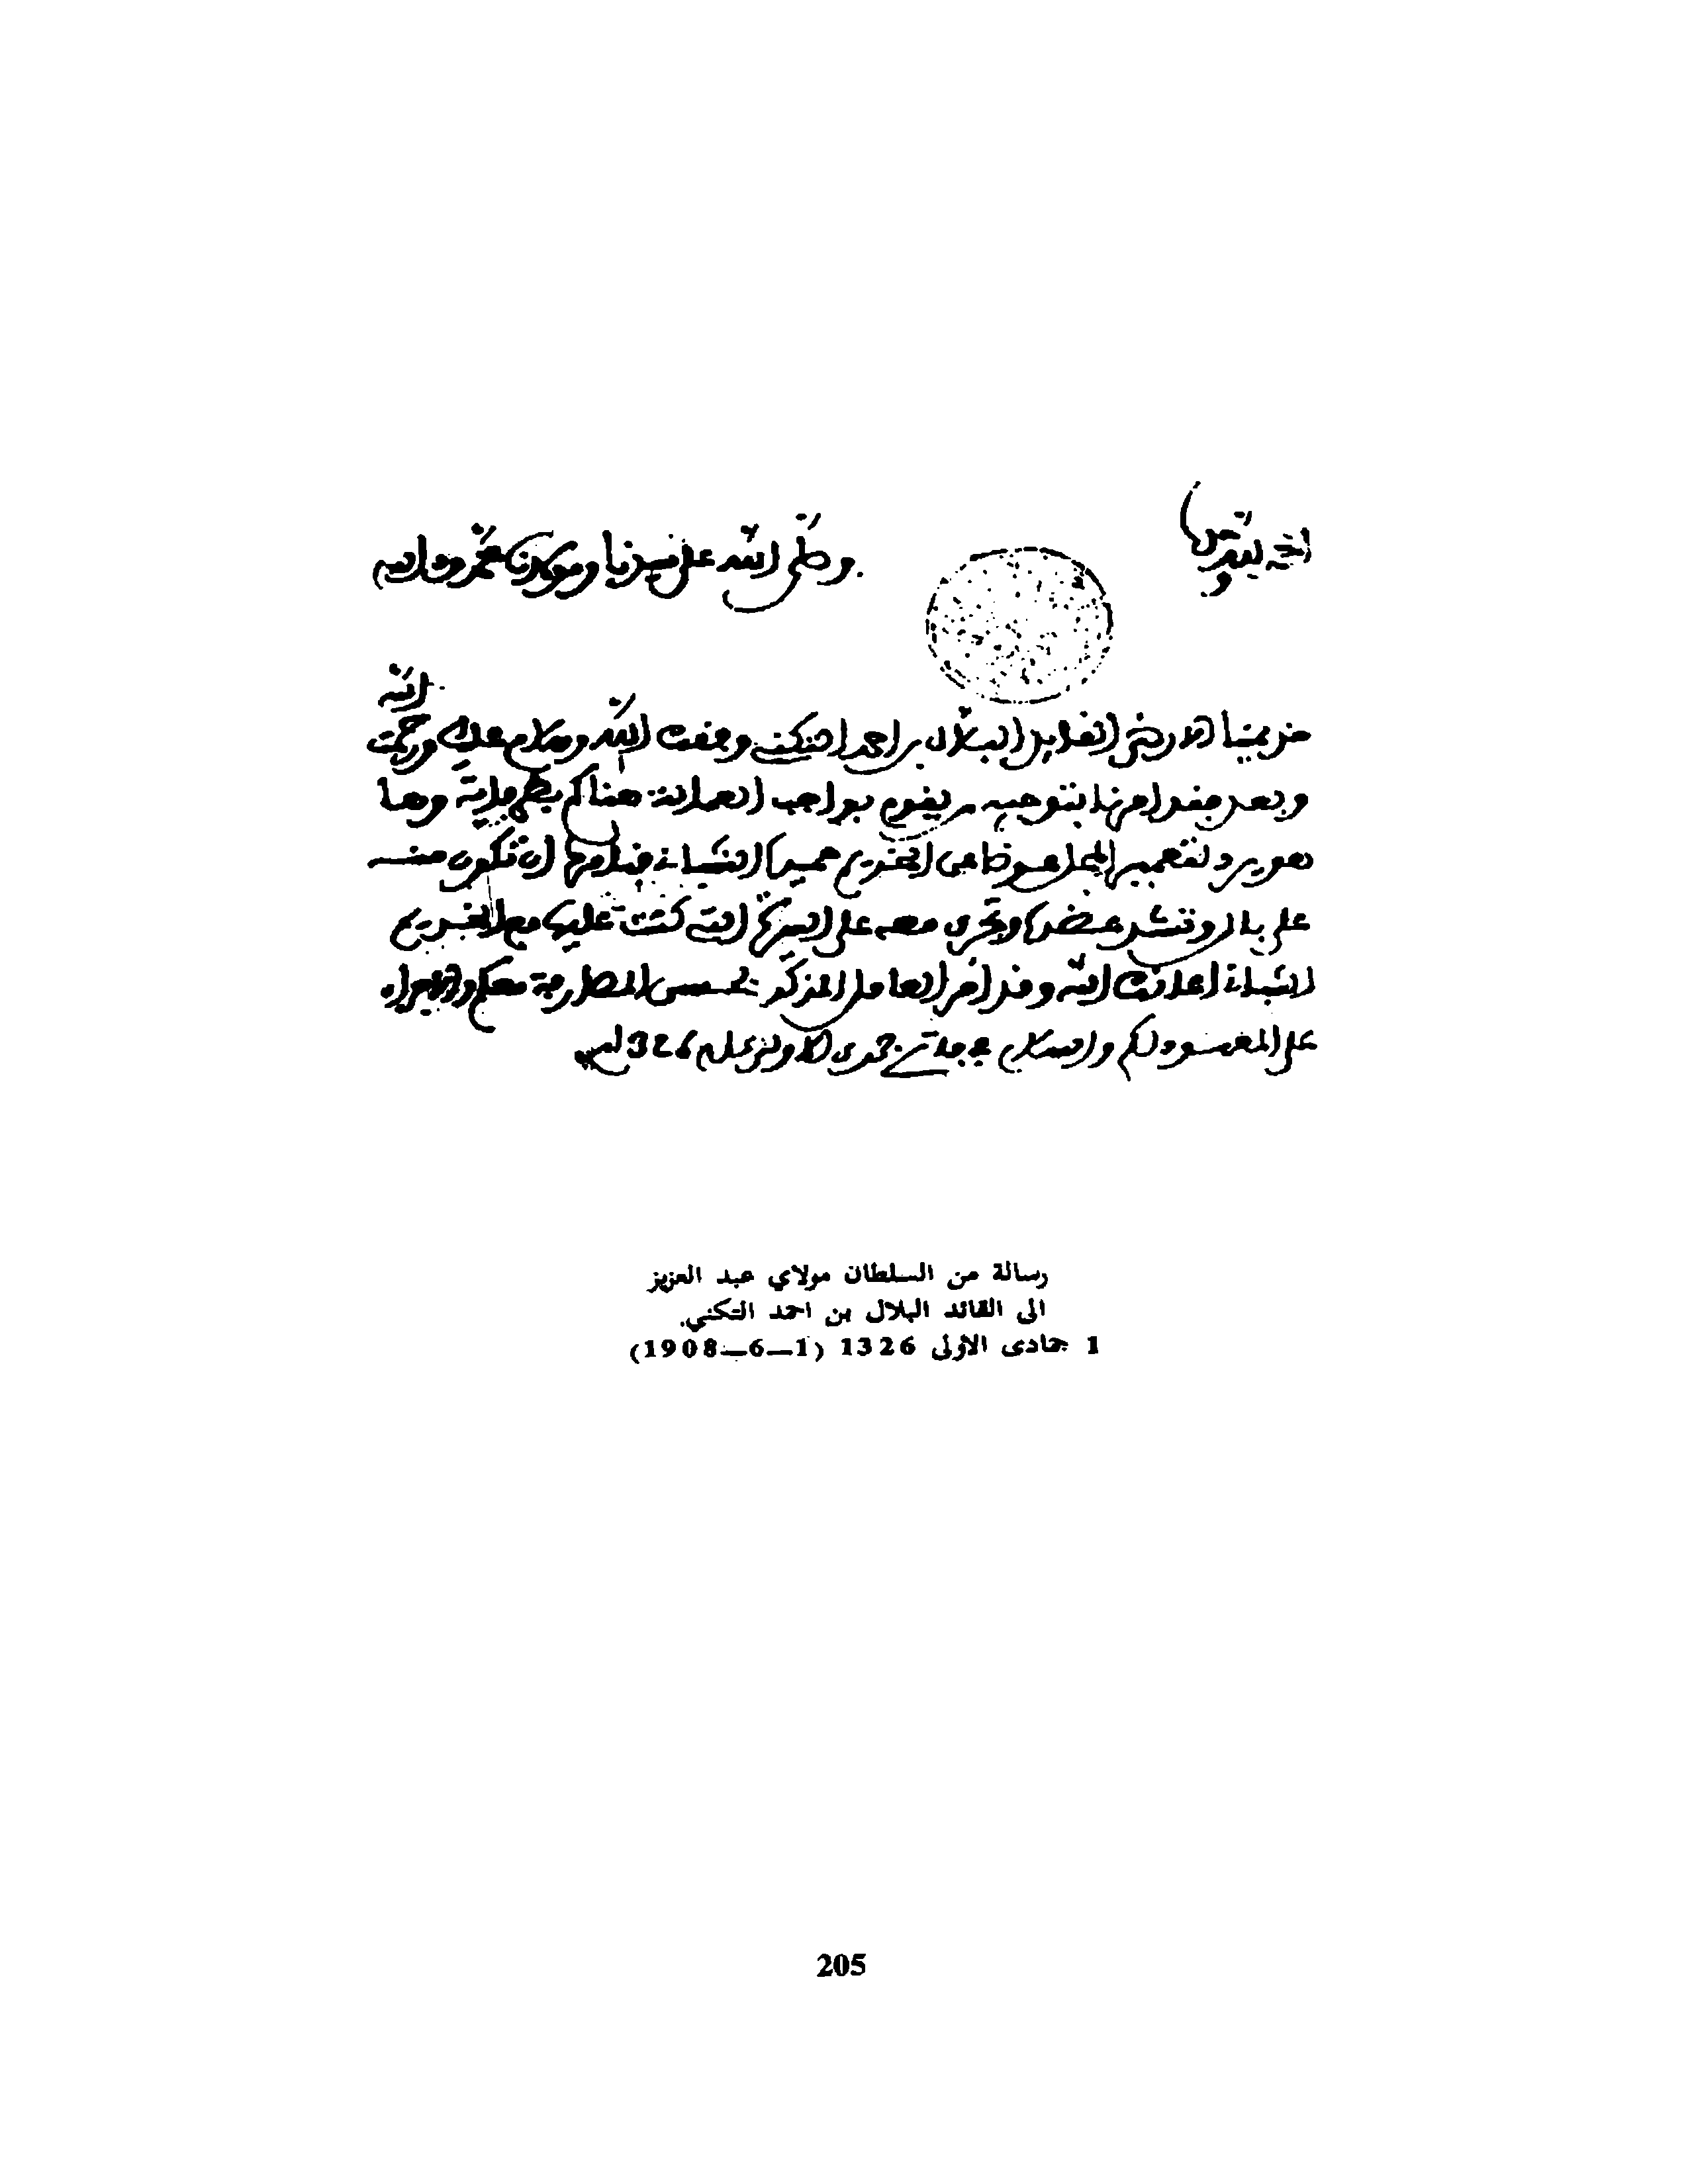 الحمد لله وحده
وصلى الله على سيدنا ومولانا محمد وءاله
خديمنا الارضى القايد البلال بن احمد التكني وفقك الله وسلام عليك ورحمت الله
وبعد فقد امرنا بتوجيه من يقوم بواجب العمالة هناكم بطرفاية وها
هو يرد لتعمير المحل عوضا عن الخديم احميدا التـ فنامرك ان تكون منه
على بال وتشد عضده وتجري معه على السيرة التي كنت عليها مع الخديم
اعانك الله وقد امر العامل المذكور بحسن المطارحة معكم والاجراء
على المعهود لكم والسلام في فاتح جمدى الاولى عام 1326
رسالة من السلطان مولاي عبد العزيز
الى القائد البلال بن احمد التكني.
1 جمادى الاولى 1326 (1—6—1908)
205